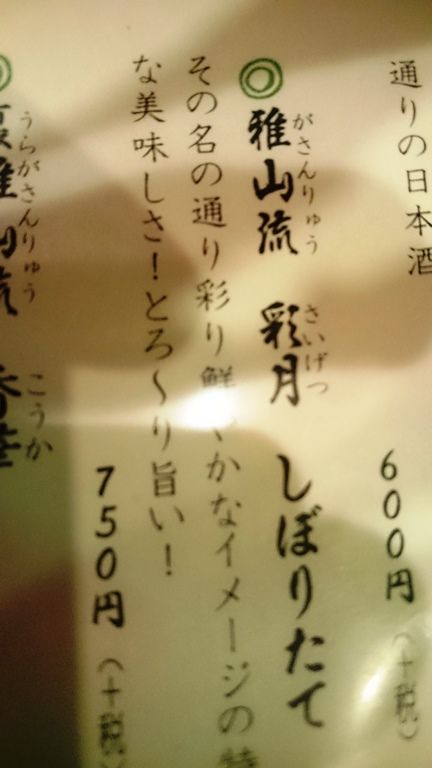 通りの日本酒
600円(+税)
◎雅山流 彩月 しぼりたて
がさんりゅう さいげつ
その名の通り彩り鮮やかなイメージの特
な美味しさ!とろ〜り旨い!
750円(+税)
◎裏雅山流 香華
うらがさんりゅう こうか